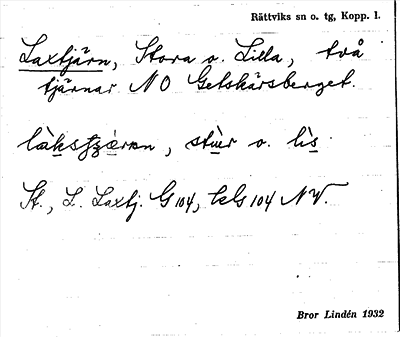 Rättviks sn o. tg, Kopp. l.
Laxtjärn, Stora o. Lilla, två
tjärnar NO Getskärsberget.
stùr o. lìs
St., L. Laxtj. G 104, bls 104 NV.
Bror Lindén 1932